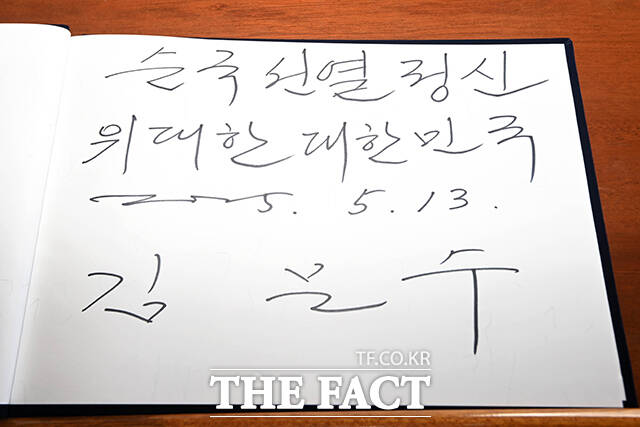 순국선열 정신
위대한 대한민국
2025. 5. 13.
김 문 수
TF.CO.KR
THE FACT